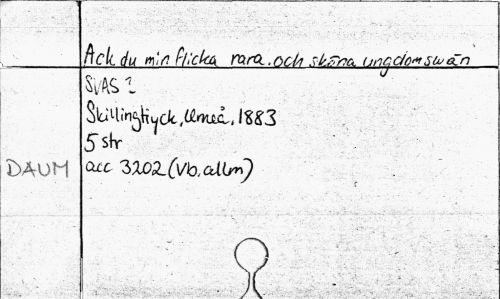 Ack du min flicka rara. och sköna ungdomswän
SVAS ?
Skillingtryck, Umeå, 1883
5 str
DAUM acc 3202 (Vb, allm)